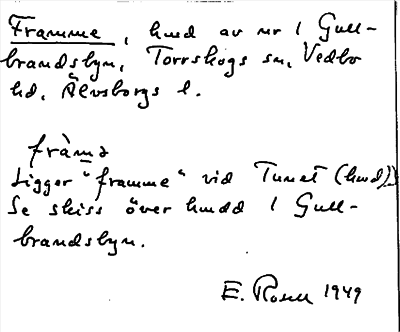 Framme, hmd av nr 1 Gull-
brandsbyn, Torrskogs sn, Vedbo
hd, Älvsborgs l.
fràmə
Ligger "framme" vid Tunet (hmd).
Se skiss över hmdd 1 Gull-
brandsbyn.
E. Rosell 1949